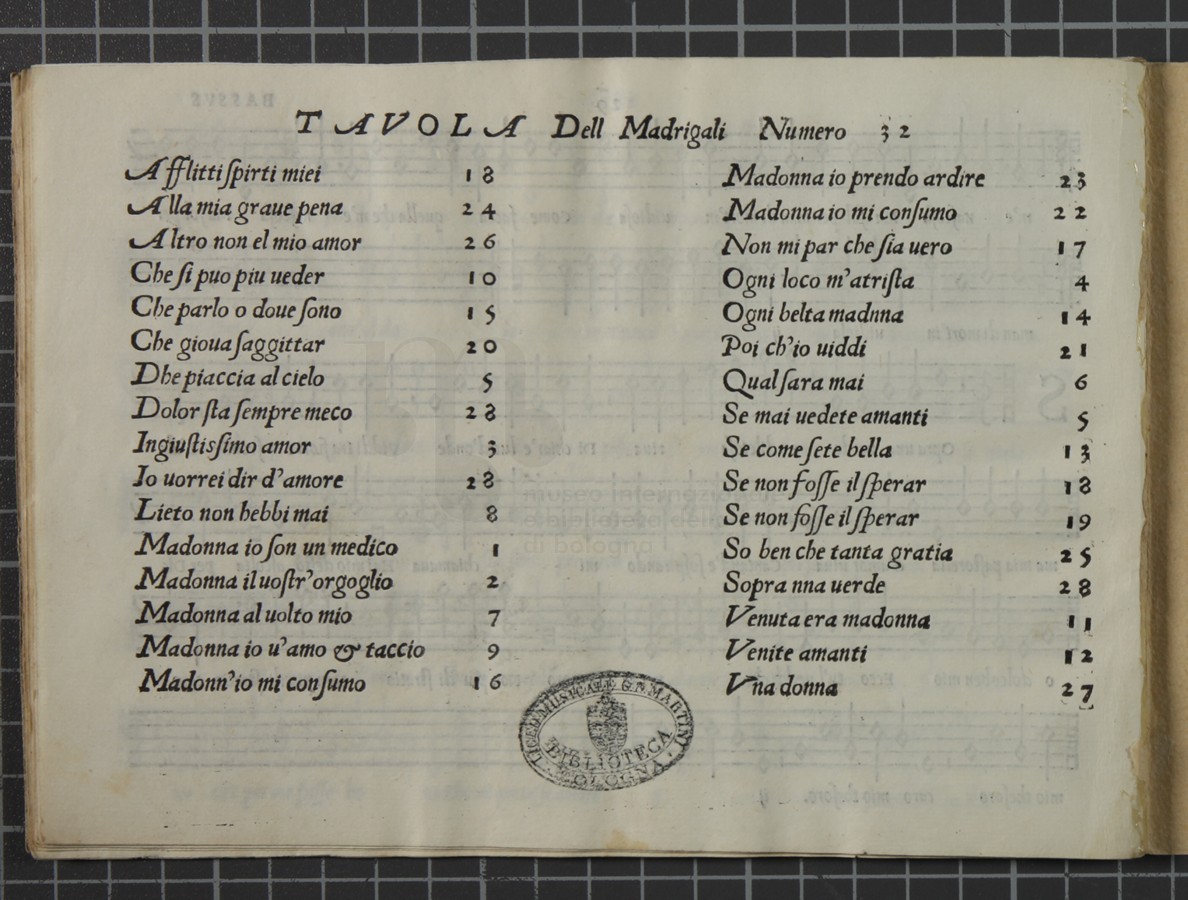 TAVOLA Dell Madrigali Numero 32
Afflitti ſpirti miei 18
Alla mia graue pena 24
Altro non el mio amor 26
Che ſi puo piu ueder 10
Che parlo o doue ſono 15
Che gioua ſaggittar 20
Dhe piaccia al cielo 5
Dolor ſta ſempre meco 28
Ingiuſtiſsimo amor 3
Io uorrei dir d'amore 28
Lieto non hebbi mai 8
Madonna io ſon un medico 1
Madonna il uoſtr'orgoglio 2
Madonna al uolto mio 7
Madonna io u'amo & taccio 9
Madonn'io mi conſumo 16
Madonna io prendo ardire 23
Madonna io mi conſumo 22
Non mi par che ſia uero 17
Ogni loco m'atriſta 4
Ogni belta madnna 14
Poi ch'io uiddi 21
Qual ſara mai 6
Se mai uedete amanti 5
Se come ſete bella 13
Se non foſſe il ſperar 18
Se non foſſe il ſperar 19
So ben che tanta gratia 25
Sopra nna uerde 28
Venuta era madonna 11
Venite amanti 12
Vna donna 27
LICEO MUSICALE G.B. MARTINI
BIBLIOTECA
BOLOGNA
museo internazionale
e biblioteca della
di bologna